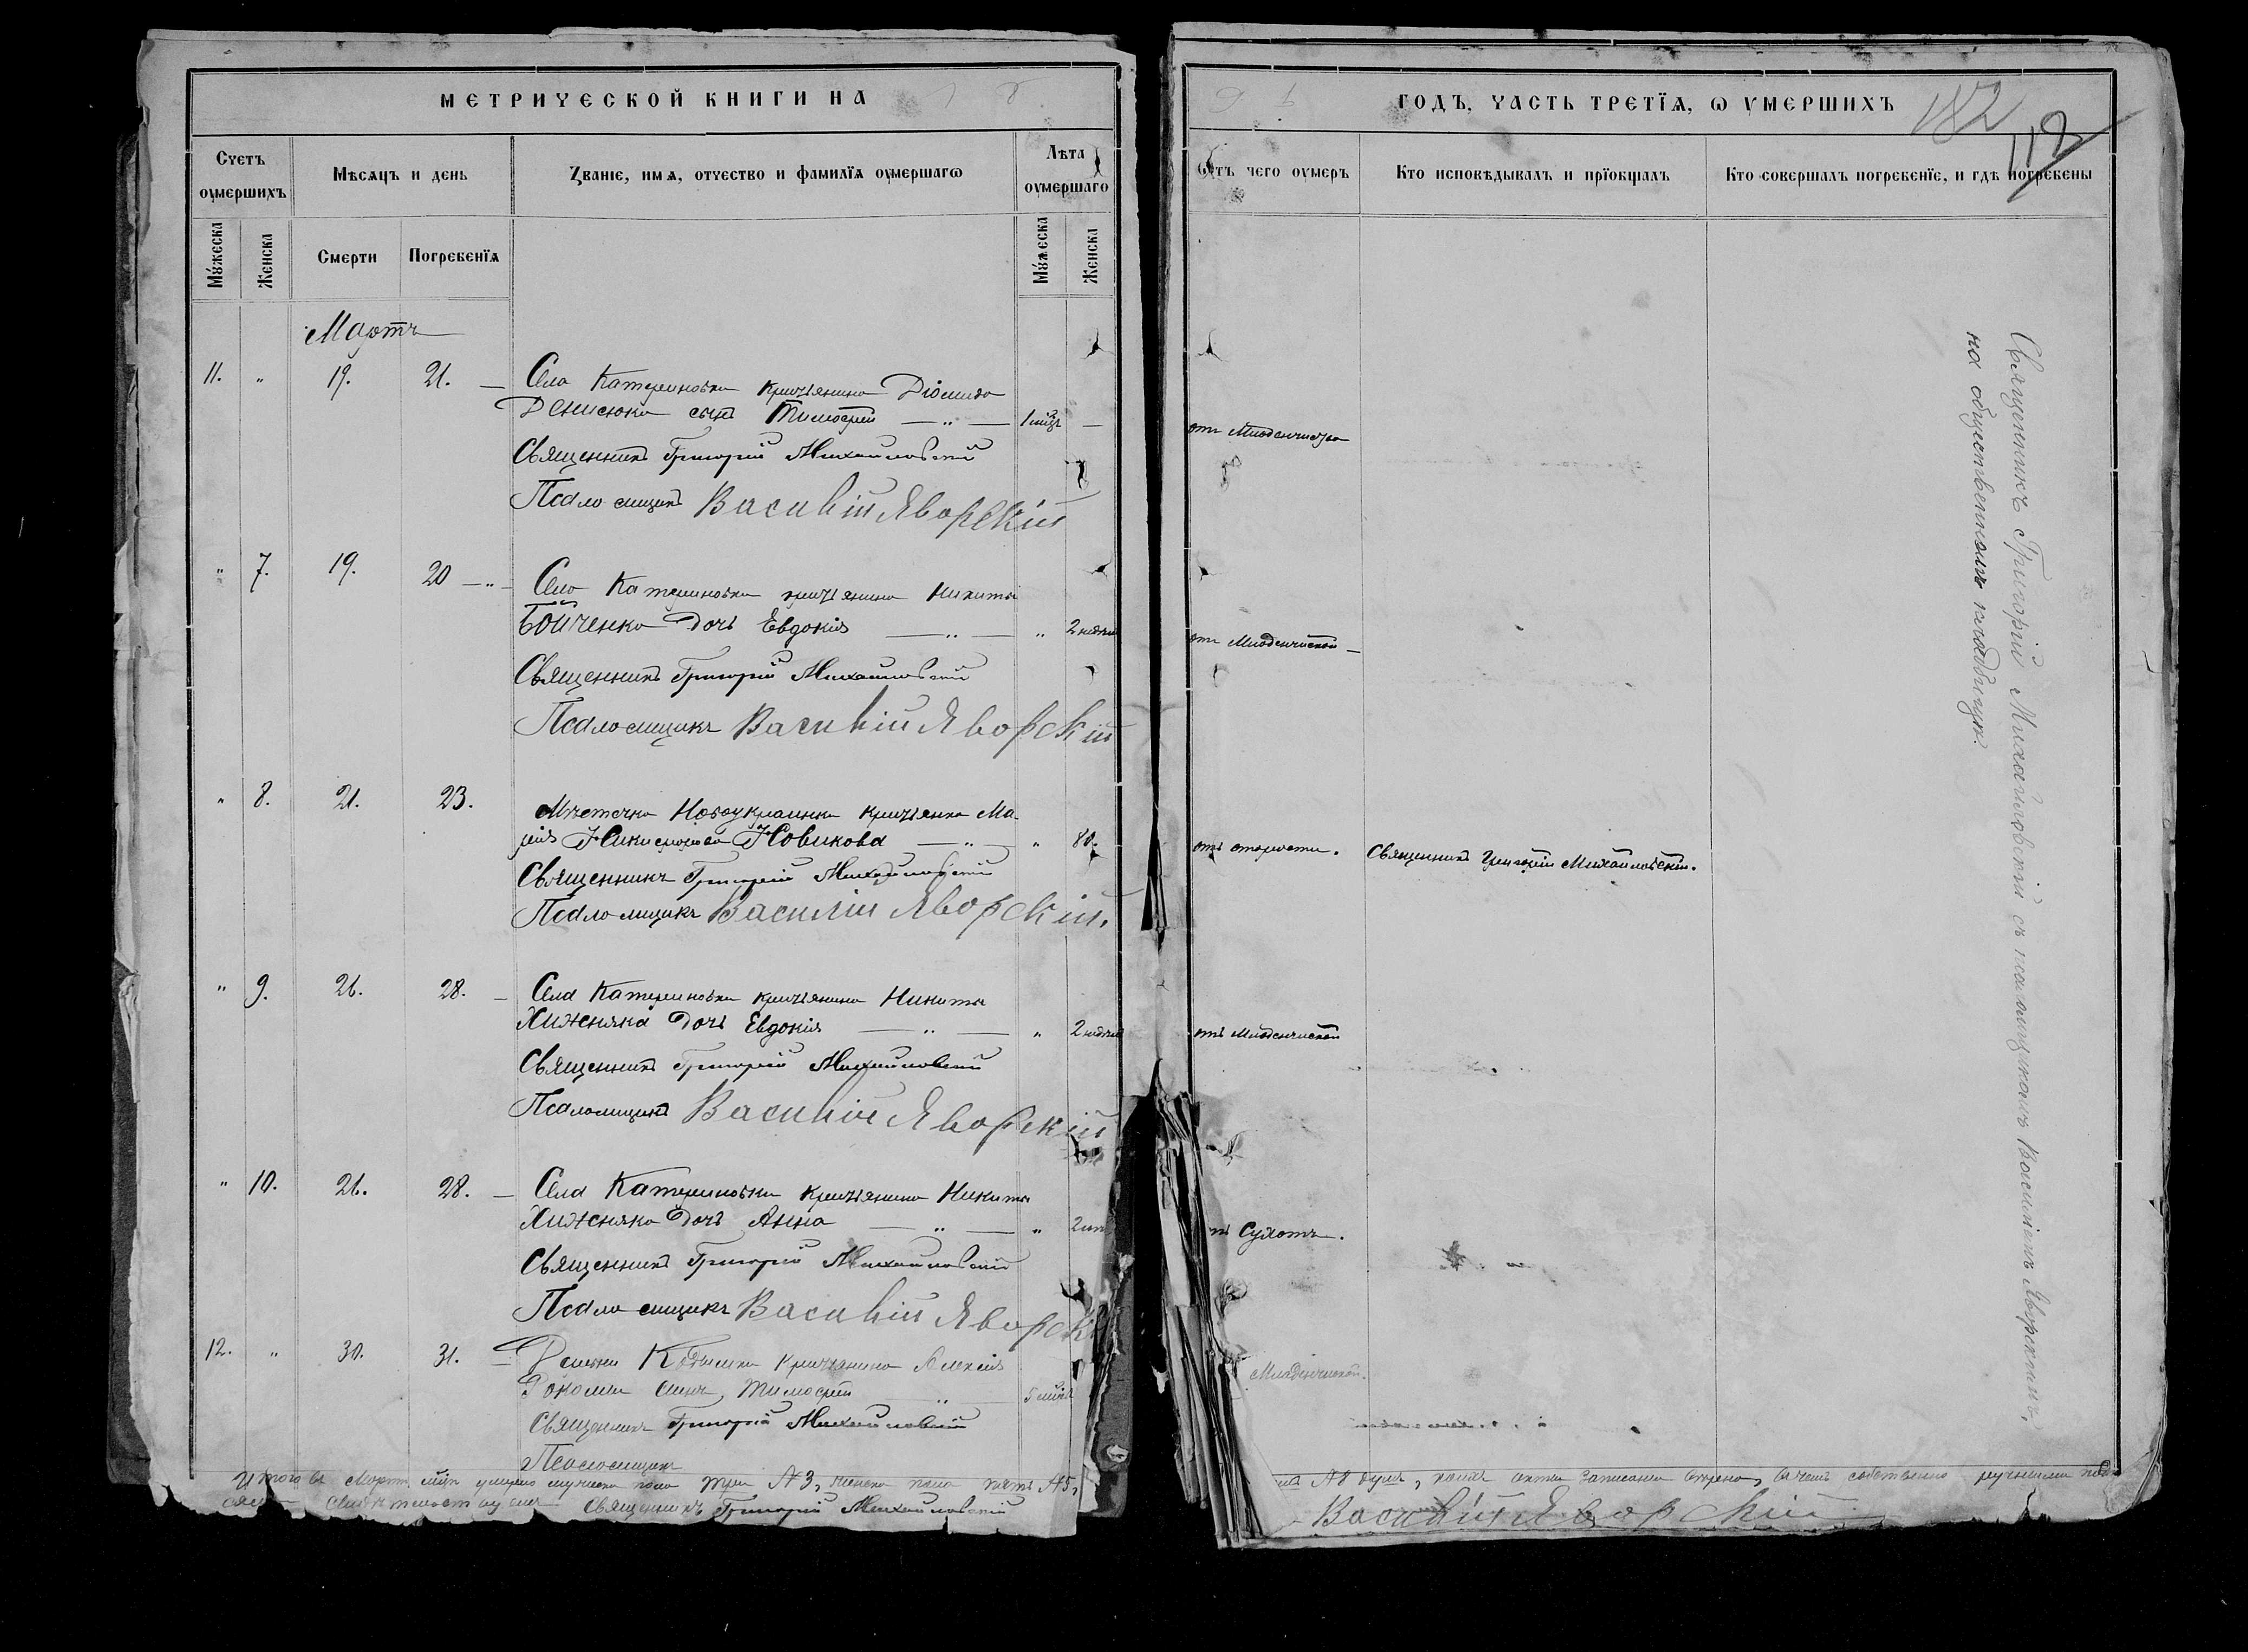 МЕТРИЧЕСКОЙ КНИГИ НА
Счетъ оумершихъ
Мѣсѧцъ и день
Званіе, имѧ, отчество и фамилїѧ оумершагѡ
Лѣта оумершаго
Мꙋжеска
Женска
Смерти
Погребенїѧ
Мꙋжеска
Женска
Мартъ
11. „ 19. 21. — Села Катериновки крестьянина Діомида
Денисюка сынъ Тимофей — „ — 1 мѣс. —
Священникъ Григорій Михайловскій
Псаломщикъ Василій Яворскій
„ 7. 19. 20 — „ — Села Катериновки крестьянина Никиты
Бойченка дочь Евдокія — „ — „ 2 недѣли
Священникъ Григорій Михайловскій
Псаломщикъ Василій Яворскій
„ 8. 21. 23. Мѣстечка Новоукраинки крестьянка Ма-
рія Никифорова Новикова — „ — „ 80.
Священникъ Григорій Михайловскій
Псаломщикъ Василій Яворскій.
„ 9. 26. 28. — Села Катериновки крестьянина Никиты
Хижняка дочь Евдокія — „ — „ 2 недѣли
Священникъ Григорій Михайловскій
Псаломщикъ Василій Яворскій
„ 10. 26. 28. — Села Катериновки крестьянина Никиты
Хижняка дочь Анна — „ — „ 2
Священникъ Григорій Михайловскій
Псаломщикъ Василій Яворскій
12. „ 30. 31. — крестьянина Алексія
сынъ Тимофей „ 5
Священникъ Григорій Михайловскій
Псаломщикъ
Итого въ Мартѣ мѣсяцѣ умерло мужеска пола три №3, женска пола пять №5,
Священникъ Григорій Михайловскій
ГОДЪ, ЧАСТЬ ТРЕТЇѦ, Ѡ ОУМЕРШИХЪ
182
112
Ѿтъ чего оумеръ
Кто исповѣдывалъ и прїобщалъ
Кто совершалъ погребенїе, и гдѣ погребены
отъ Младенческой
отъ Младенческой —
отъ старости. Священникъ Григорій Михайловскій.
отъ Младенческой
Сухотъ.
Младенческой.
Священникъ Григорій Михайловскій съ псаломщикомъ Василіемъ Яворскимъ,
на общественномъ кладбищѣ.
№8 душъ, акты записаны вѣрно, въ чемъ собственно ручными под-
Василій Яворскій